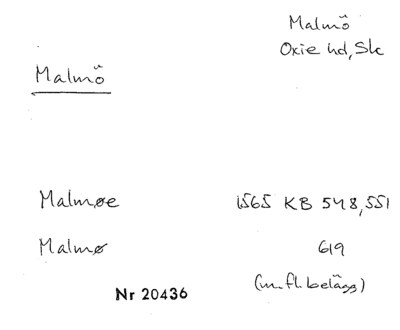 Malmö
Oxie hd, Sk
Malmö
Malmøe 1565 KB 548, 551
Malmø 619
(m. fl. belägg)
Nr 20436